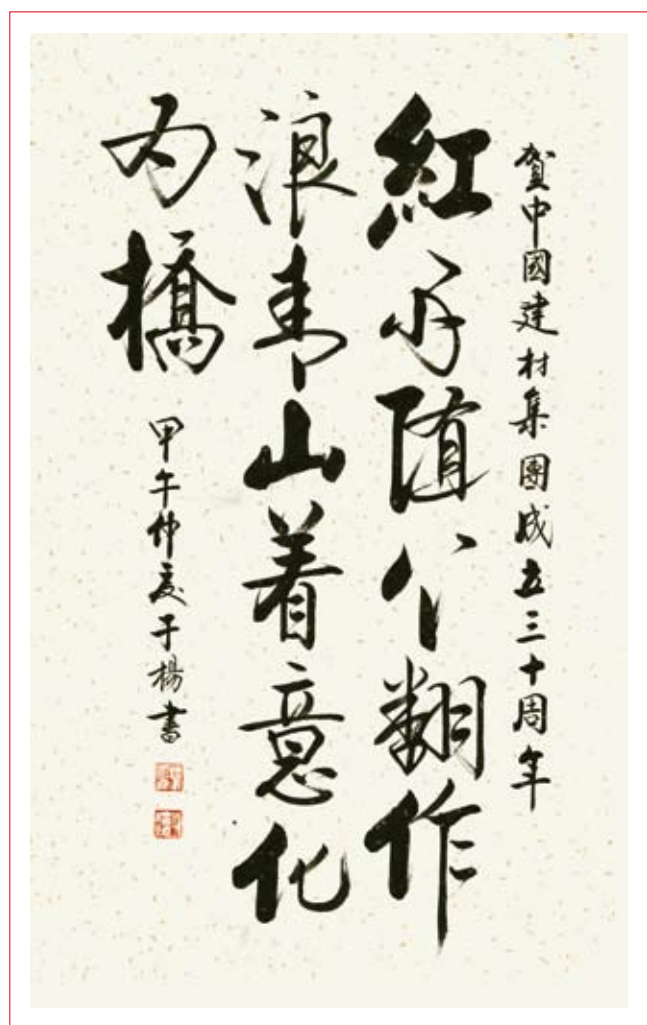 賀中國建材集團成立三十周年
紅雨随心翻作
浪青山着意化
为橋
甲午仲夏于楊書